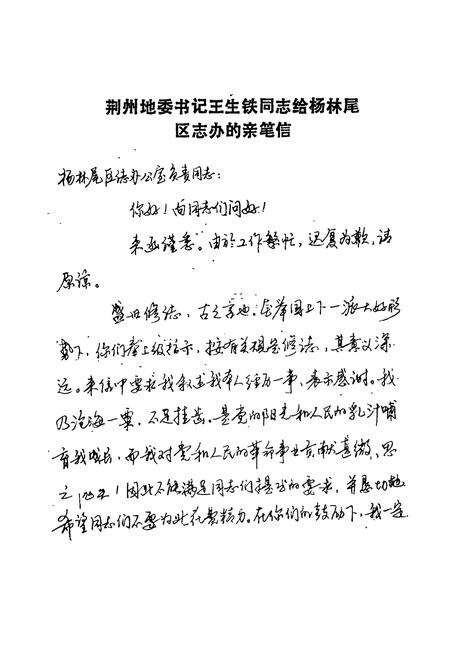 荆州地委书记王生铁同志给杨林尾
区志办的亲笔信
杨林尾区志办公室负责同志:
你好!向同志们问好!
来函谨悉。由於工作繁忙,迟复为歉,请
原谅。
盛世修志,古之常也。在举国上下一派大好形
势下,你们奉上级指示,按有关规定修志,其意义深
远。来信中要求我叙述我本人经历一事,表示感谢。我
乃沧海一粟,不足挂齿。是党的阳光和人民的乳汁哺
育我成长,而我对党和人民的革命事业贡献甚微,思
之!因此不能满足同志们提出的要求,并恳切地
希望同志们不要为此在费精力。在你们的鼓励下,我一定